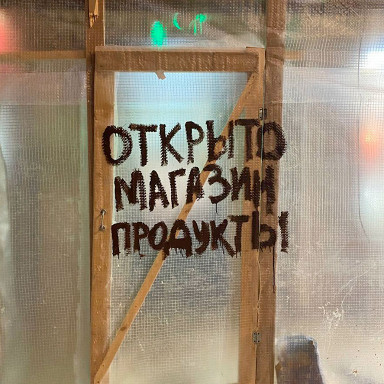 ОТКРЫТО
МАГАЗИН
ПРОДУКТЫ